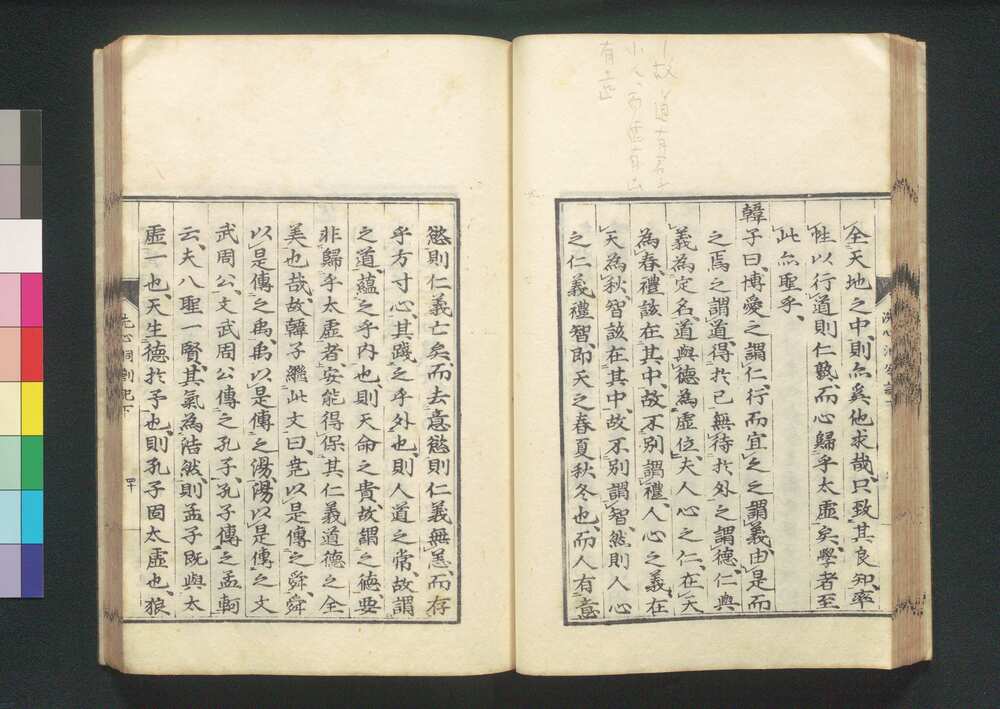 故道有君子
小人、而
有
全天地之中、則亦奚他求哉、只致其良知、率
性以行道則仁熟而心歸乎太虛矣、學者至
此亦聖乎、
韓子曰、博愛之謂仁、行而宜之之謂義、由是而
之焉之謂道、得於己無待於外之謂德、仁與
義為定名、道與德為虛位、夫人心之仁、在天
為春、禮該在其中、故不別謂禮、人心之義、在
天為秋、智該在其中、故不別謂智、然則人心
之仁義禮智、即天之春夏秋冬也、而人有意
慾則仁義亡矣、而去意慾則仁義無恙、而存
乎方寸心、其踐之乎外也、則人道之常、故謂
之道、蘊之乎内也、則天命之貴、故謂之德、要
非歸乎太虛者、安能得保其仁義道德之全
美也哉、故韓子繼此文曰、堯以是傳之舜、舜
以是傳之禹、禹以是傳之湯、湯以是傳之文
武周公、文武周公傳之孔子、孔子傳之孟軻
云、夫八聖一賢、其氣為浩然、則孟子既與太
虛一也、天生德於予也、則孔子固太虛也、狼
洗心洞劄記下
四十